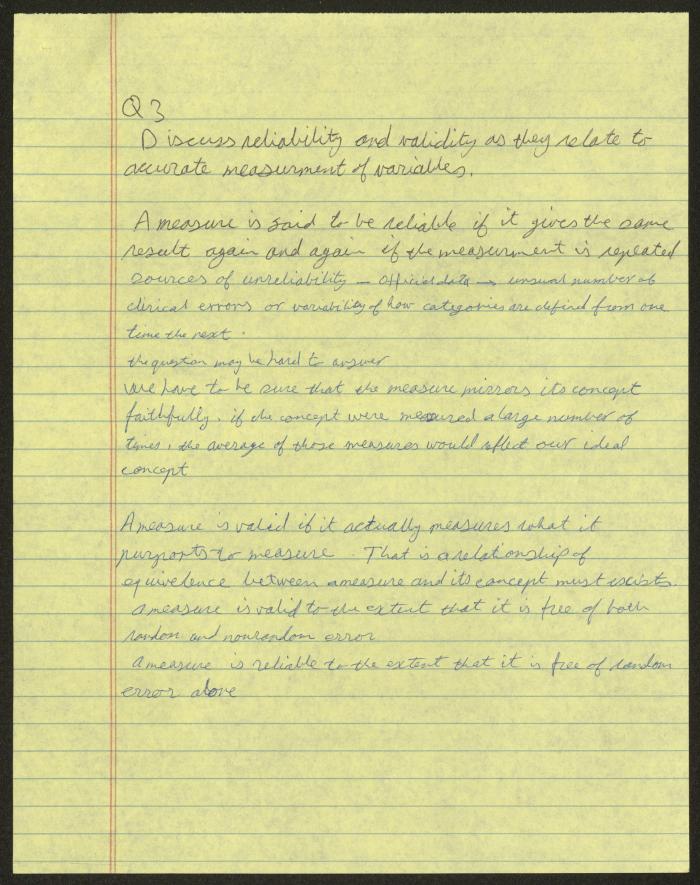 Q 3
Discuss reliability and validity as they relate to
accurate measurment of variables.
A measure is said to be reliable if it gives the same
result again and again if the measurment is repeated
sources of unreliability — official data → unusual number of
clirical errors or variability of how categories are defined from one
time the next.
the question may be hard to answer
We have to be sure that the measure mirrors its concept
faithfully. if the concept were measured a large number of
times, the average of those measures would reflect our ideal
concept
A measure is valid if it actually measures what it
purports to measure. That is a relationship of
equivelence between a measure and its concept must exists.
a measure is valid to the extent that it is free of both
random and nonrandom error
a measure is reliable to the extent that it is free of random
error alone